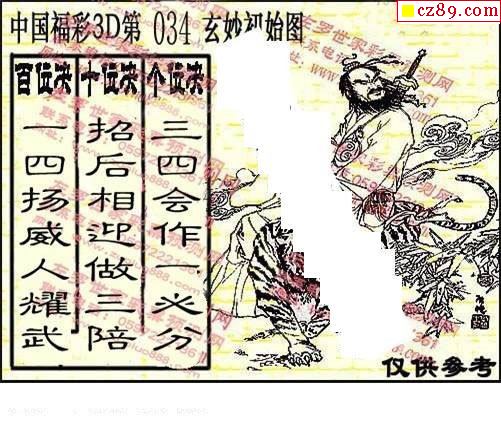 cz89.com
中国福彩3D第 034 玄妙初始图
百位决
一四扬威人耀武
十位决
招后相迎做三陪
个位决
三四会作一必分
仅供参考